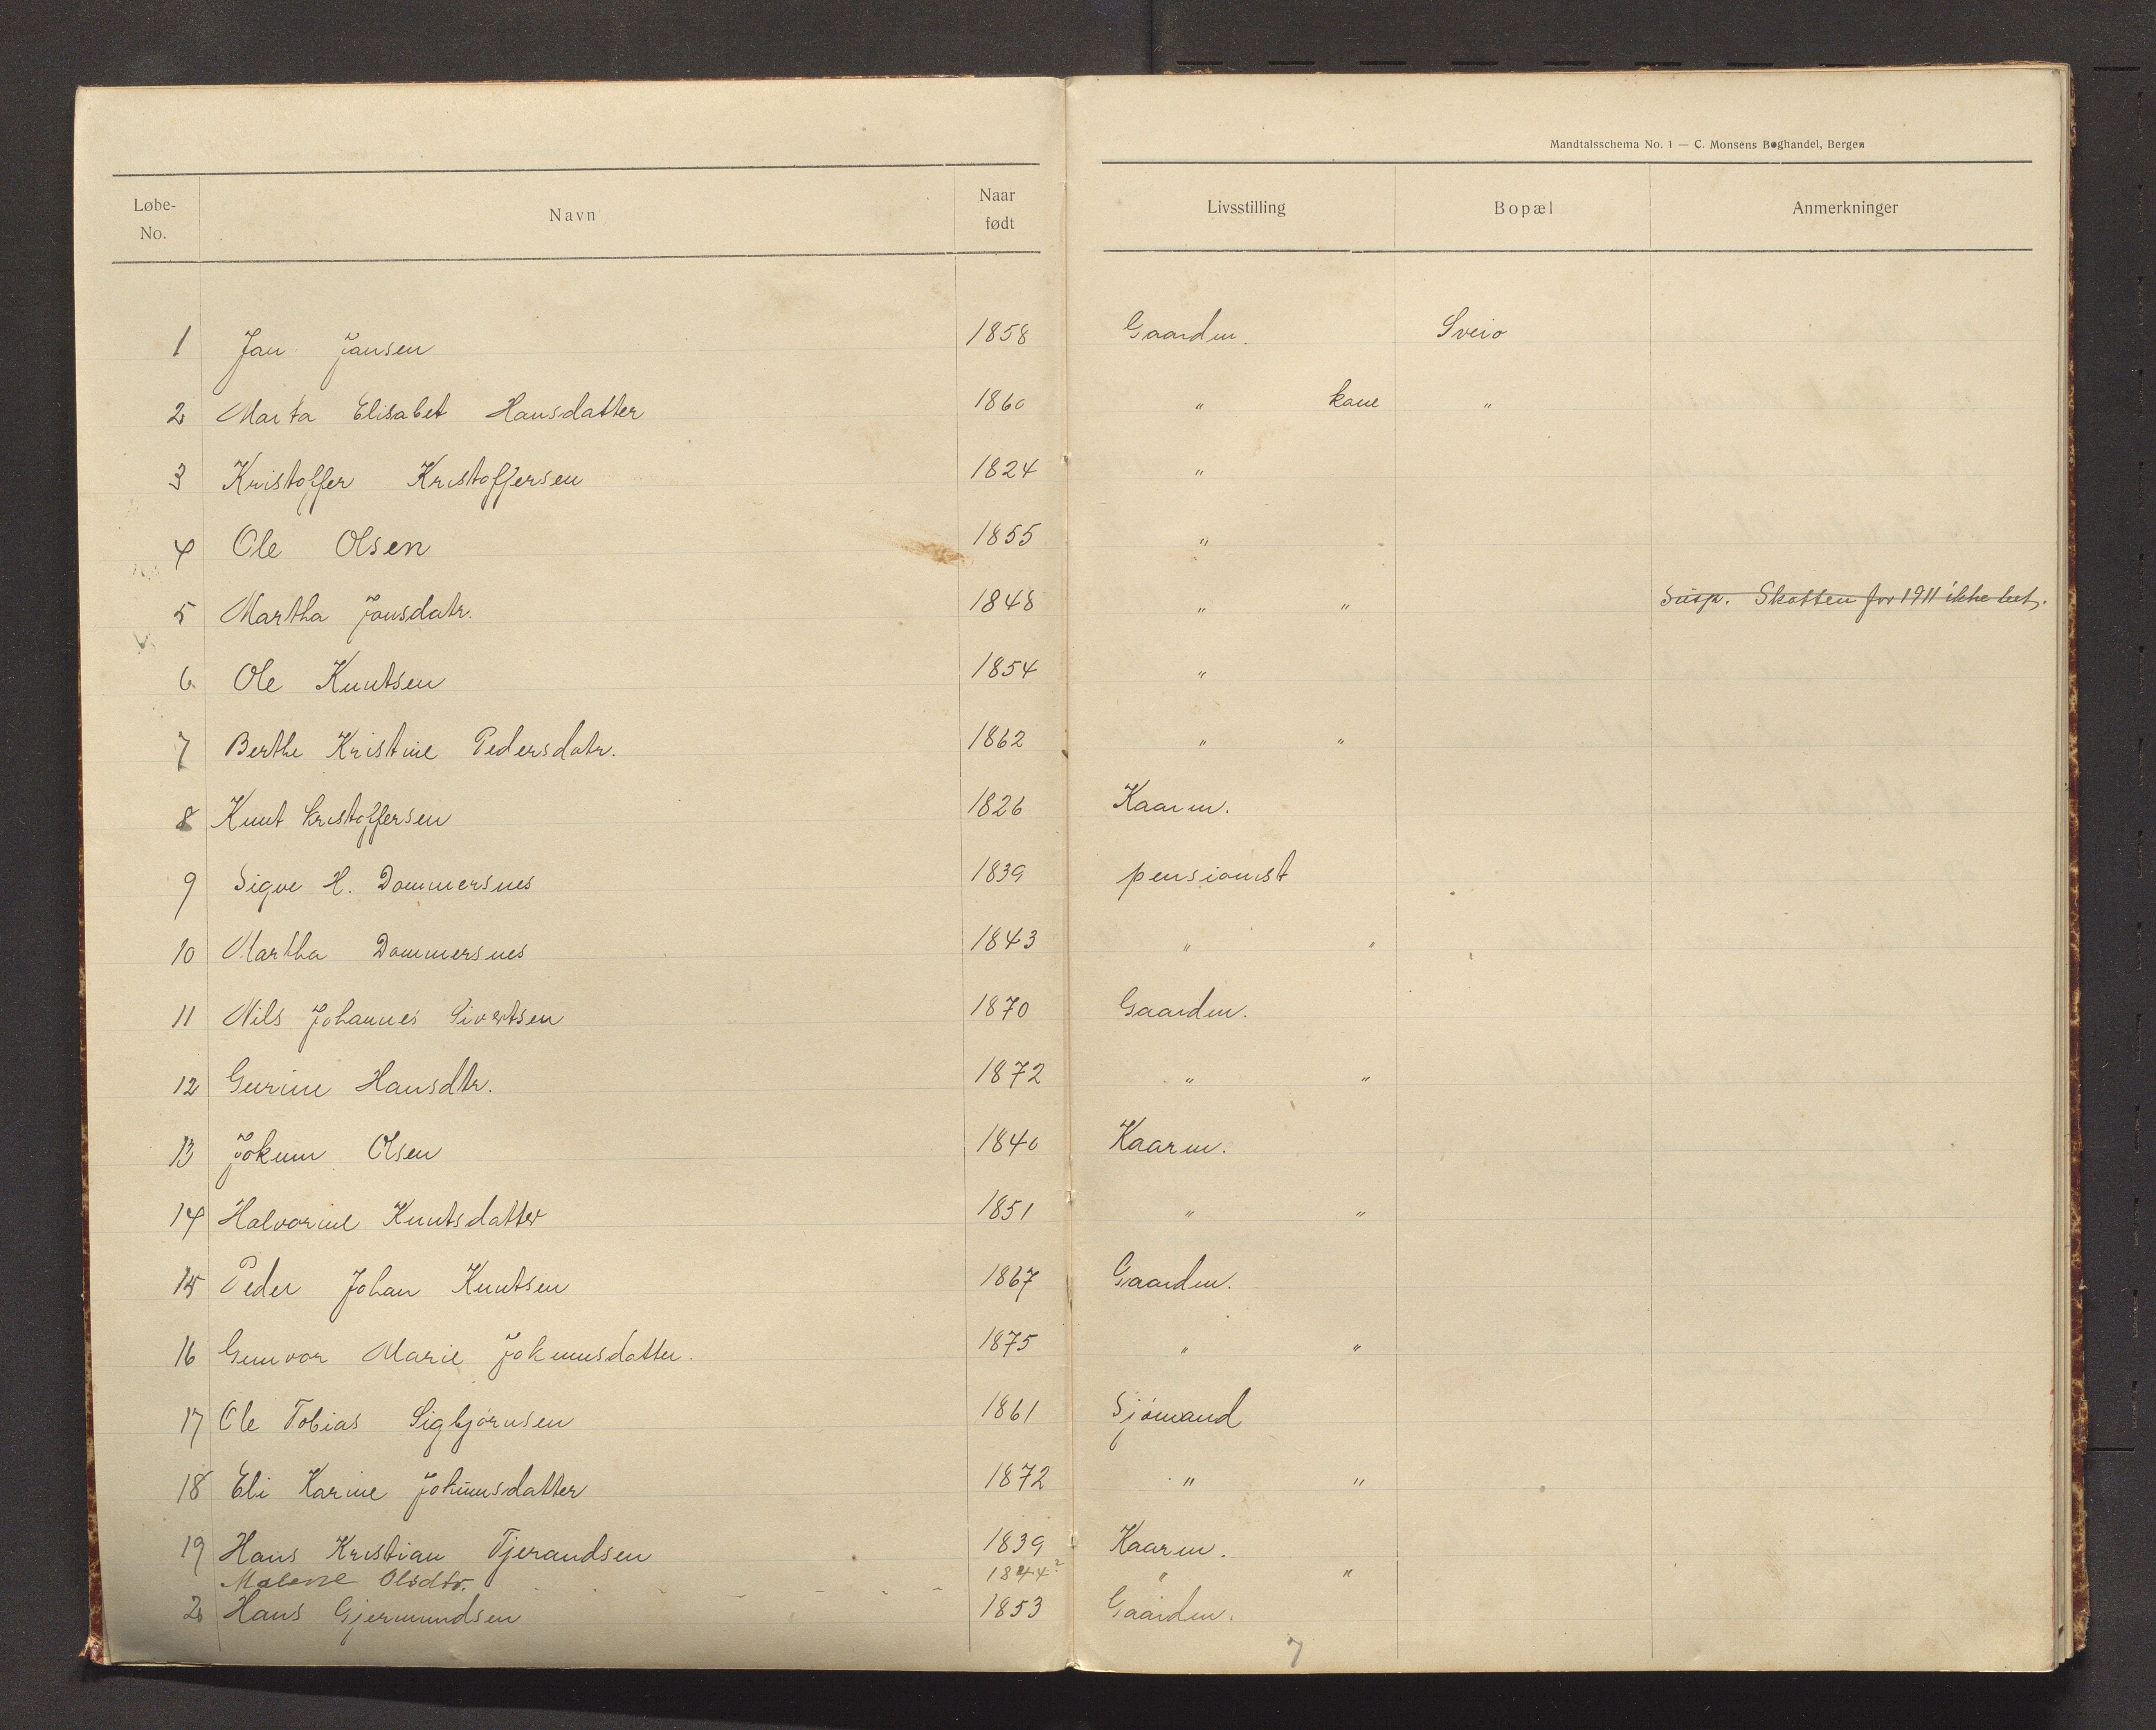 Mandtalsschema No. 1 — C. Monsens Boghandel, Bergen
Løbe-No. Navn Naar født Livsstilling Bopæl Anmerkninger
1 Jan Jansen 1858 Gaardm. Sveio
2 Marta Elisabet Hansdatter 1860 " kone "
3 Kristoffer Kristoffersen 1824 "
4 Ole Olsen 1855 "
5 Martha Jonsdatr. 1848 " " Susp. Skatten for 1911 ikke bet.
6 Ole Knutsen 1854 "
7 Berthe Kristine Pedersdatr. 1862 " "
8 Knut Kristoffersen 1826 Kaarm.
9 Sigve H. Dommersnes 1839 pensionist
10 Martha Dommersnes 1843 " "
11 Nils Johannes Sivertsen 1870 Gaardm.
12 Gurine Hansdtr. 1872 " "
13 Jokum Olsen 1840 Kaarm.
14 Halvorine Knutsdatter 1851 " "
15 Peder Johan Knutsen 1867 Gaardm.
16 Gunvor Marie Jokumsdatter. 1875 " "
17 Ole Tobias Sigbjørnsen 1861 Sjømand
18 Eli Karine Jokumsdatter 1872 " "
19 Hans Kristian Tjerandsen 1839 Kaarm.
Malene Olsdtr. 1844? " "
20 Hans Gjermundsen 1853 Gaardm.
7